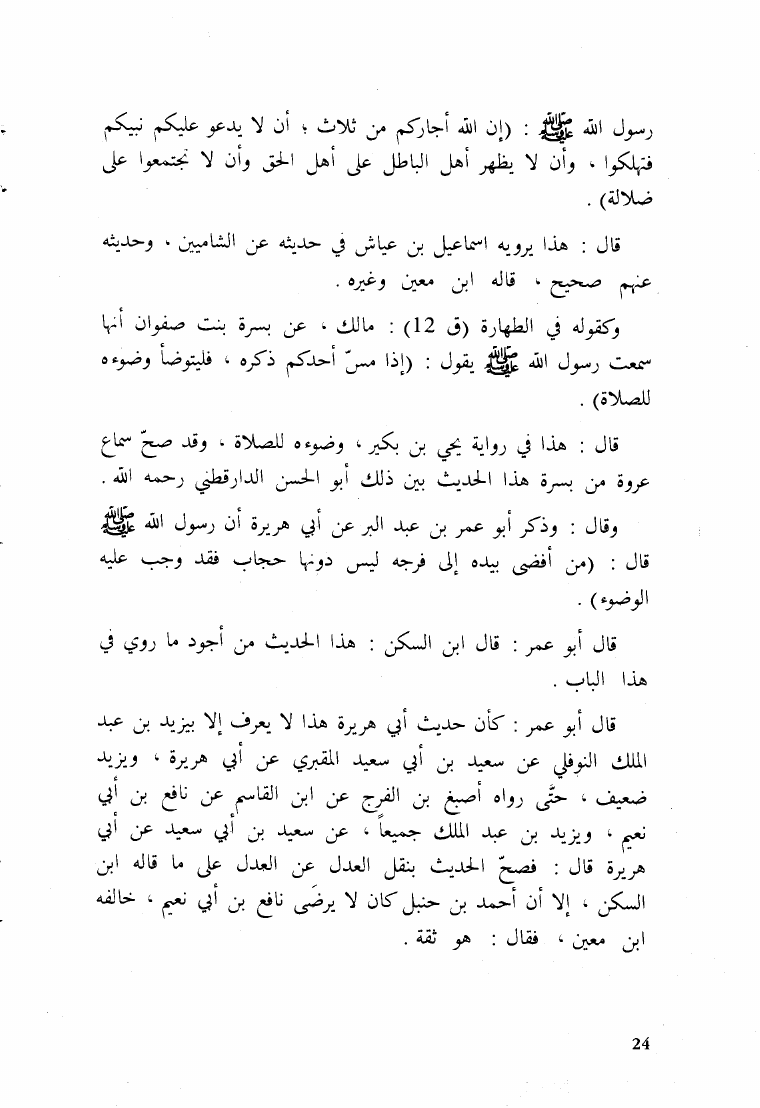 رسول الله ﷺ : (إن الله أجاركم من ثلاث ؛ أن لا يدعو عليكم نبيكم
فتهلكوا ، وأن لا يظهر أهل الباطل على أهل الحق وأن لا تجتمعوا على
ضلالة) .
قال : هذا يرويه اسماعيل بن عياش في حديثه عن الشاميين ، وحديثه
عنهم صحيح ، قاله ابن معين وغيره .
وكقوله في الطهارة (ق 12) : مالك ، عن بسرة بنت صفوان أنها
سمعت رسول الله ﷺ يقول : (إذا مسّ أحدكم ذكره ، فليتوضأ وضوءه
للصلاة) .
قال : هذا في رواية يحي بن بكير ، وضوءه للصلاة ، وقد صحّ سماع
عروة من بسرة هذا الحديث بين ذلك أبو الحسن الدارقطني رحمه الله .
وقال : وذكر أبو عمر بن عبد البر عن أبي هريرة أن رسول الله ﷺ
قال : (من أفضى بيده إلى فرجه ليس دونها حجاب فقد وجب عليه
الوضوء) .
قال أبو عمر : قال ابن السكن : هذا الحديث من أجود ما روي في
هذا الباب .
قال أبو عمر : كأن حديث أبي هريرة هذا لا يعرف إلا بيزيد بن عبد
الملك النوفلي عن سعيد بن أبي سعيد المقبري عن أبي هريرة ، ويزيد
ضعيف ، حتَّى رواه أصبغ بن الفرج عن ابن القاسم عن نافع بن أبي
نعيم ، ويزيد بن عبد الملك جميعاً ، عن سعيد بن أبي سعيد عن أبي
هريرة قال : فصحّ الحديث بنقل العدل عن العدل على ما قاله ابن
السكن ، إلا أن أحمد بن حنبل كان لا يرضَى نافع بن أبي نعيم ، خالفه
ابن معين ، فقال : هو ثقة .
24